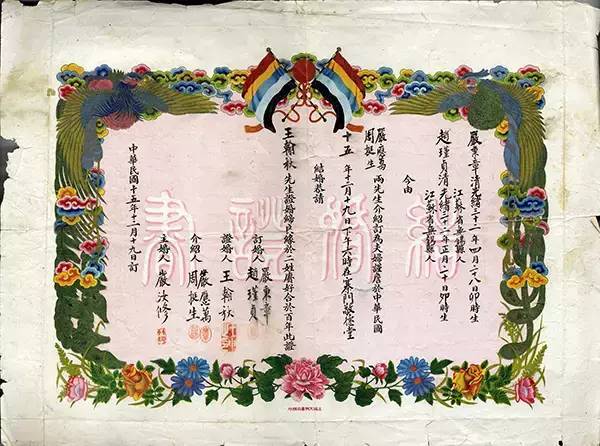 嚴東章清光緒三十二年四月二八日卯時生
江蘇省無錫縣人
趙瑾貞清光緒三十二年正月二十日卯時生
江蘇省無錫縣人
今由
嚴應萬
周挺生
兩先生介紹訂為夫婦謹店於中華民國
十五年十二月十九日下午六時在寨門敬修堂
結婚恭請
王翰秋先生證婚締良緣於二姓慶好合於百年此證
訂婚人
嚴東章
趙瑾貞
證婚人王翰秋
介紹人
嚴應萬
周挺生
主婚人嚴汝修
中華民國十五年十二月十九日訂
結婚證書